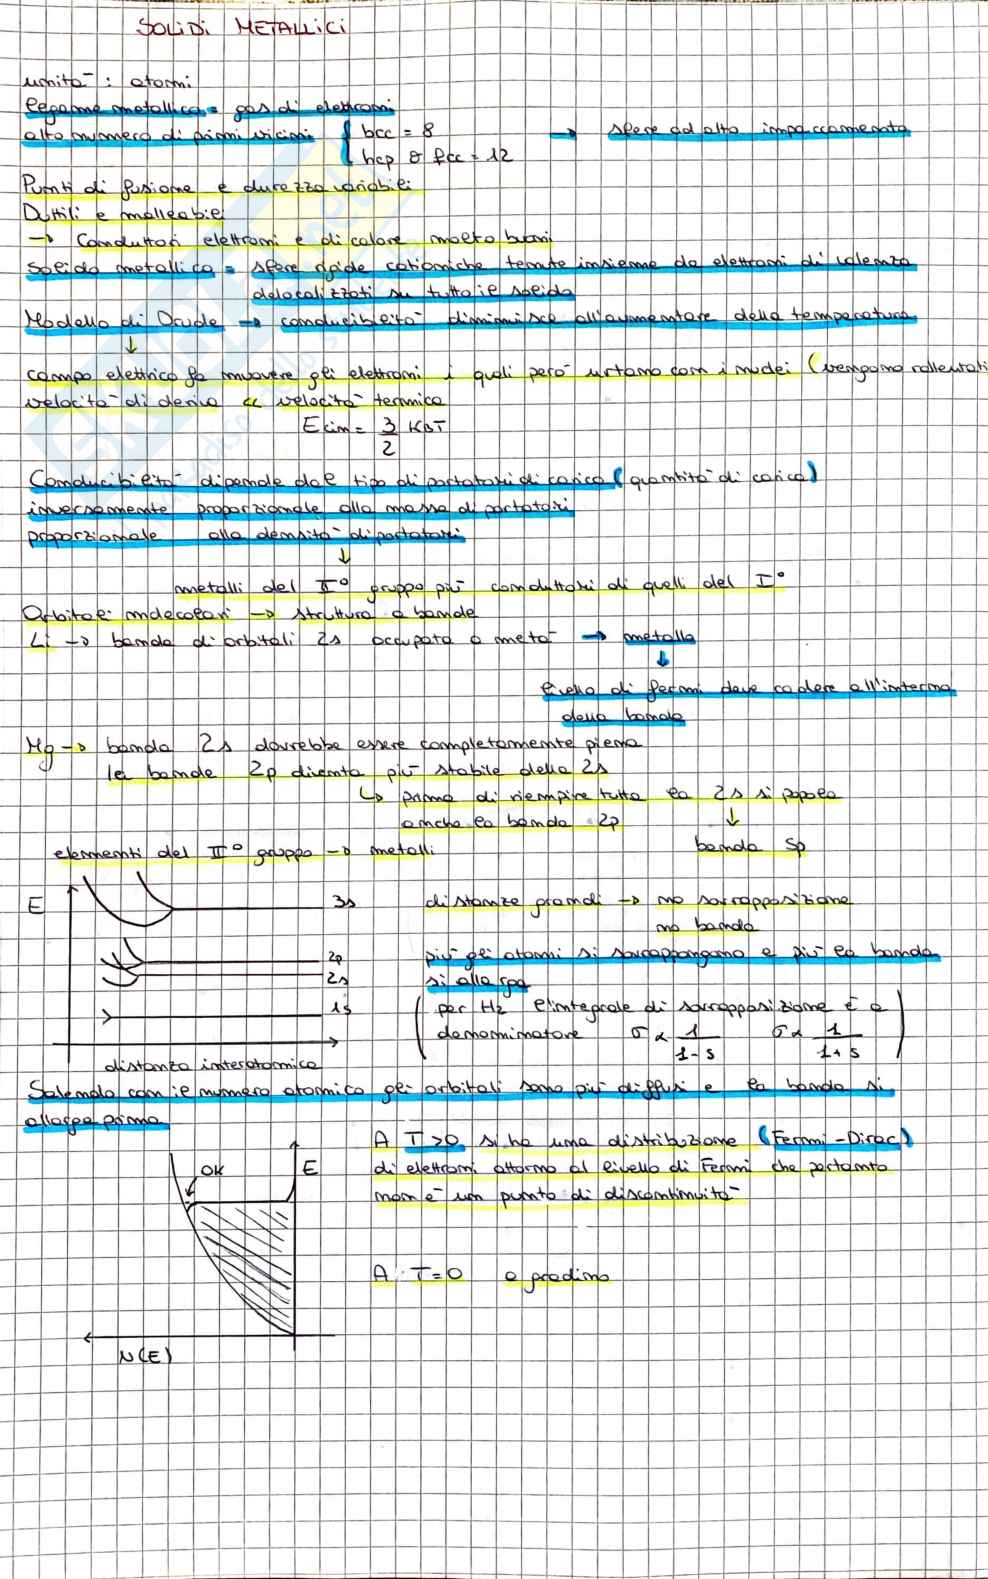 SOLIDI METALLICI
unità : atomi
legame metallico = gas di elettroni
alto numero di primi vicini { bcc = 8 → sfere ad alto impaccamento
hcp & fcc = 12
Punti di fusione e durezza variabili
Duttili e malleabili
→ Conduttori elettroni e di calore molto buoni
Solido metallico = sfere rigide cationiche tenute insieme da elettroni di valenza
delocalizzati su tutto il solido
Modello di Drude → conducibilità diminuisce all'aumentare della temperatura
↓
campo elettrico fa muovere gli elettroni i quali però urtano con i nuclei (vengono rallentati
velocità di deriva << velocità termica
Ecin = 3/2 KBT
Conducibilità dipende dal tipo di portatori di carica (quantità di carica)
inversamente proporzionale alla massa di portatori
proporzionale alla densità di portatori
↓
metalli del II° gruppo più conduttori di quelli del I°
Orbitali molecolari → struttura a bande
Li → banda di orbitali 2s occupata a metà → metallo
↓
livello di fermi deve cadere all'interno
della banda
Mg → banda 2s dovrebbe essere completamente piena
la banda 2p diventa più stabile della 2s
↳ prima di riempire tutta la 2s si popola
anche la banda 2p ↓
elementi del II° gruppo → metalli banda sp
E 3s distanze grandi → no sovrapposizione
no banda
2p più gli atomi si sovrappongono e più la banda
2s si allarga
1s (per H2 l'integrale di sovrapposizione è a
denominatore σ ∝ 1/1-s σ ∝ 1/1+s)
distanza interatomica
Salendo con il numero atomico gli orbitali sono più diffusi e la banda si
allarga prima
A T>0 si ha una distribuzione (Fermi-Dirac)
0K E di elettroni attorno al livello di Fermi che pertanto
non è un punto di discontinuità
A T=0 a gradino
N(E)